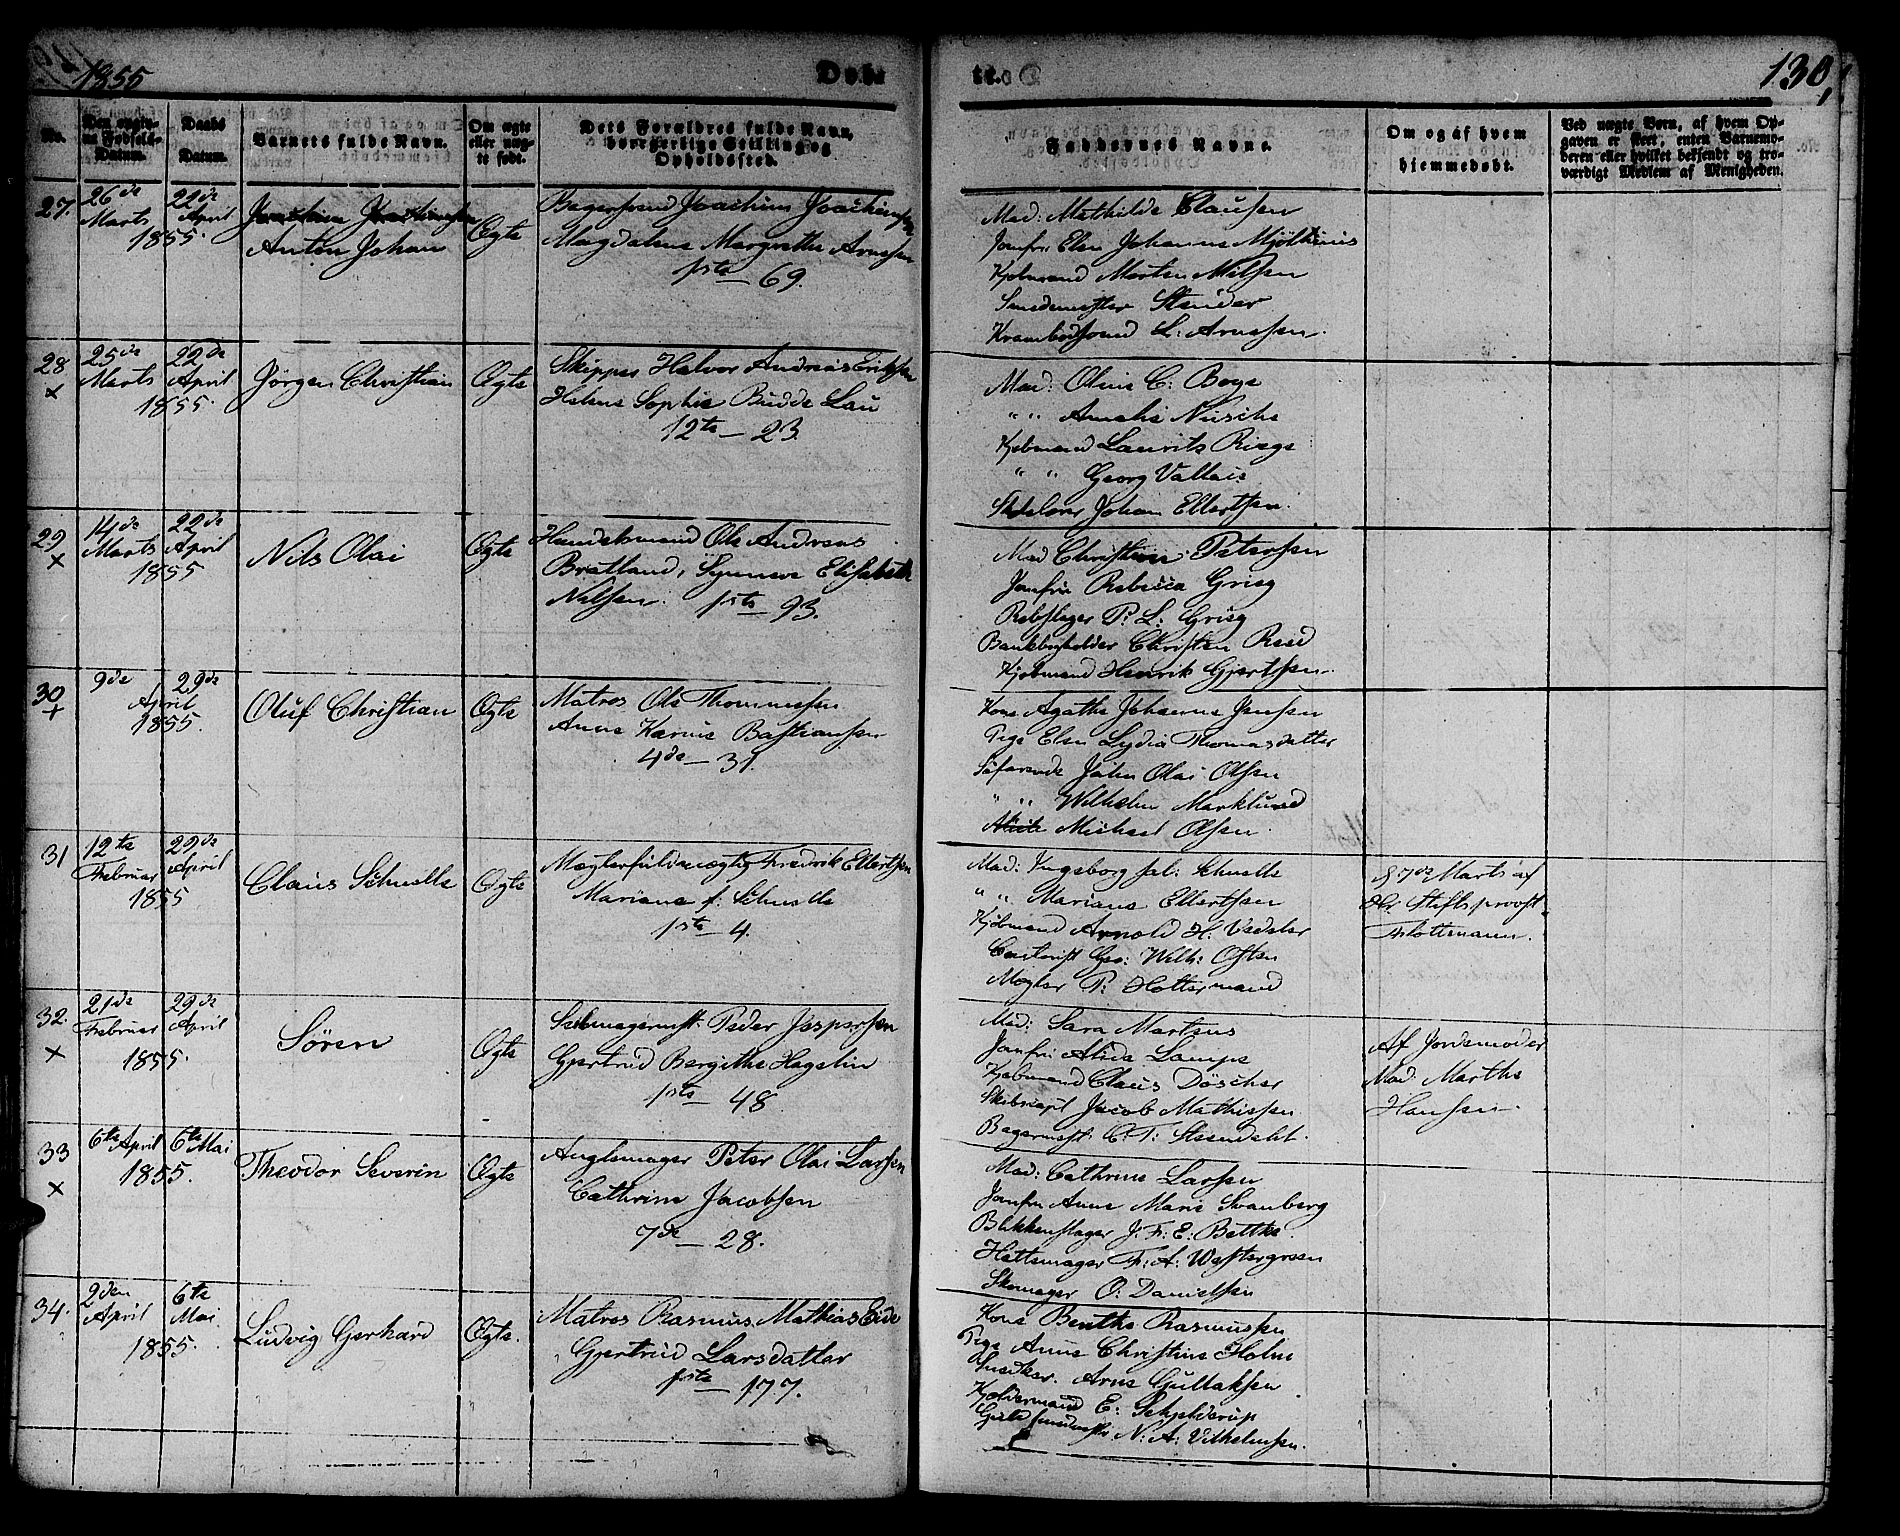 1855
Døbte.
130,
No.
Den opgivne Fødsels-Datum.
Daabs Datum.
Barnets fulde Navn.
Om ægte eller uægte født.
Dets Forældres fulde Navn, borgerlige Stilling og Opholdssted.
Faddernes Navne.
Om og af hvem hjemmedøbt.
Ved uægte Børn, af hvem Opgaven er skeet, enten Barnemoderen eller hvilket bekjendt og troværdigt Medlem af Menigheden.
27.
26de Marts
22de April
1855.
Anton Johan
Ægte
Bagersvend Joachim Joachimsen
Magdalene Margrethe Arnesen
1ste — 69.
Mad: Mathilde Clausen
Jomfru Elen Johanne
Kjøbmand Morten Nilsen
Smedemester Stender
Krambodsvend L: Arnesen.
28
×
25de Marts
22de April
1855.
Jörgen Christian
Ægte
Skipper Halvor Andreas Eriksen
Helene Sophie Budde Lau
12te — 23.
Mad: Oline C: Boye
" " Amalie
Kjøbmand Laurits Riege
" " Georg Vallace
Johan Ellertsen.
29
×
14de Marts
22de April
1855
Nils Olai
Ægte
Handelsmand Ole Andreas
Bratland, Synneve Elisabeth
Nilsen. 1ste — 93.
Mad Christine Petersen
Jomfru Rebecca Grieg
Rebslager P: L: Grieg
Bankbogholder Christen
Kjøbmand Henrik Gjertsen.
30
+
9de
29de
April
1855.
Oluf Christian
Ægte
Matros Ole Thommesen
Anne Karine Bastiansen
4de — 31.
Kone Agathe Johanne Jensen
Pige Elen Lydia Thomasdatter
Søfarende John Olai Olsen
" " Wilhelm Marklund
Michael Olsen.
31
12te Februar
29de April
1855
Claus Schnelle
Ægte
Mæglerfuldmægtig Fredrik Ellertsen
Mariane f: Schnelle
1ste — 4.
Mad: Ingeborg sal: Schnelle
" " Mariane Ellertsen
Kjøbmand Arnold H: Vedeler
Geo: Wilh: Olsen
Mægler P: Holtermand
d 7de Marts af
Hr Stiftsprovst
32.
×
21de Februar
29de April
1855.
Sören
Ægte
Seilmagermst. Peder Jespersen
Gjertrud Bergithe Hagelin
1ste — 48
Mad: Sara Martens
Jomfru Alida Lampe
Kjøbmand Claus Döscher
Skibscapt Jacob Mathiesen
Bagermst. C: T:
Af Jordemoder
Mad: Marthe
Hansen.
33
×
6te April
6te Mai
1855.
Theodor Severin
Ægte
Anglemager Peter Olai Larsen
Cathrine Jacobsen
7de — 28.
Mad: Cathrine Larsen
Jomfru Anne Marie Svanberg
Blikkenslager J. F: E: Bethke
Hattemager F: A: Westergreen
Skomager O: Danielsen
34.
2den April
6te Mai
1855.
Ludvig Gerhard
Ægte.
Matros Rasmus Mathias Eide
Gjertrud Larsdatter
1ste — 177.
Kone Benthe Rasmussen
Pige Anne Christine Holm
Snedker. Arne Gullaksen
Kjeldermand E: Schjelderup
Guldsmedmst. N: A: Vilhelmsen.